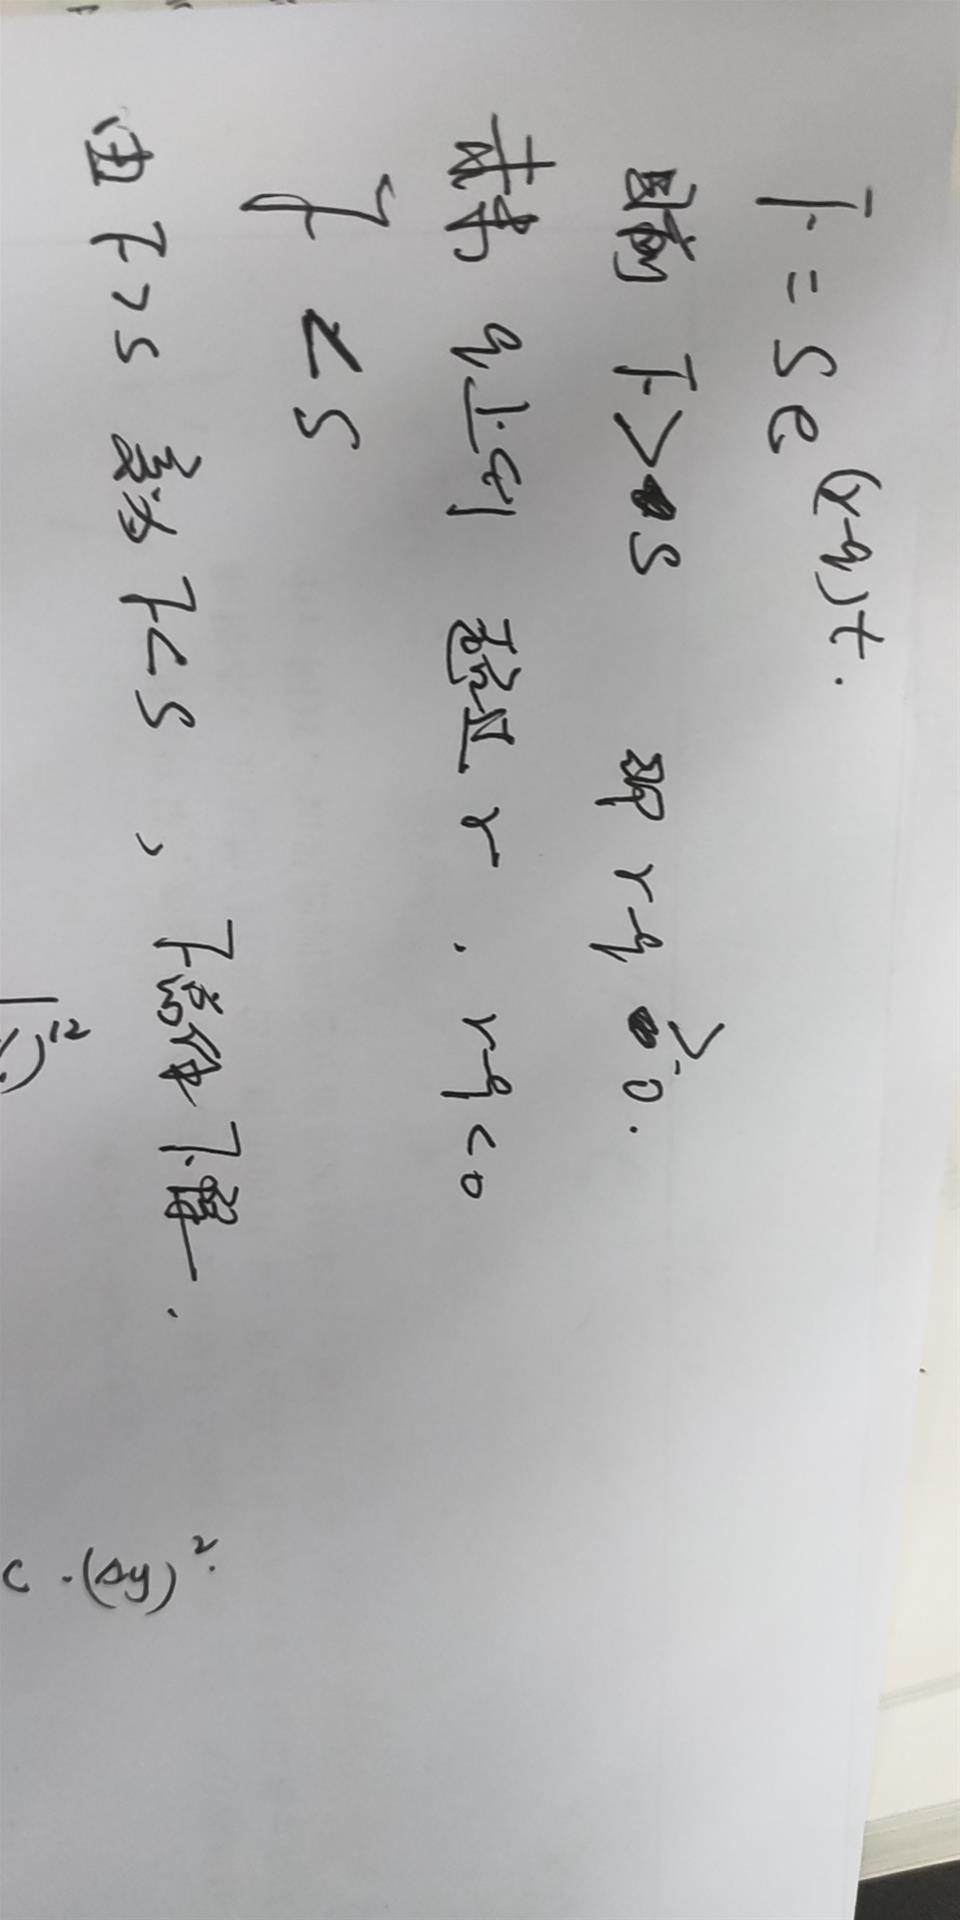 F = S e^(r-q)t.
目前 F > S 即 r-q > 0.
若 q 上升 超过 r. r-q < 0
F < S
由 F > S 变为 F < S,
)^12
C · (Δy)^2.